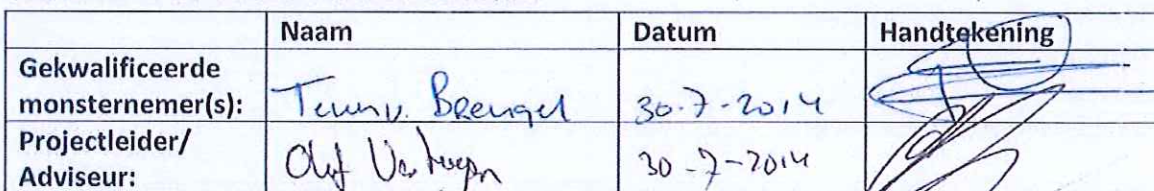 Naam Datum Handtekening
Gekwalificeerde
monsternemer(s): Teun v. Breugel 30-7-2014
Projectleider/
Adviseur: Olaf 30-7-2014